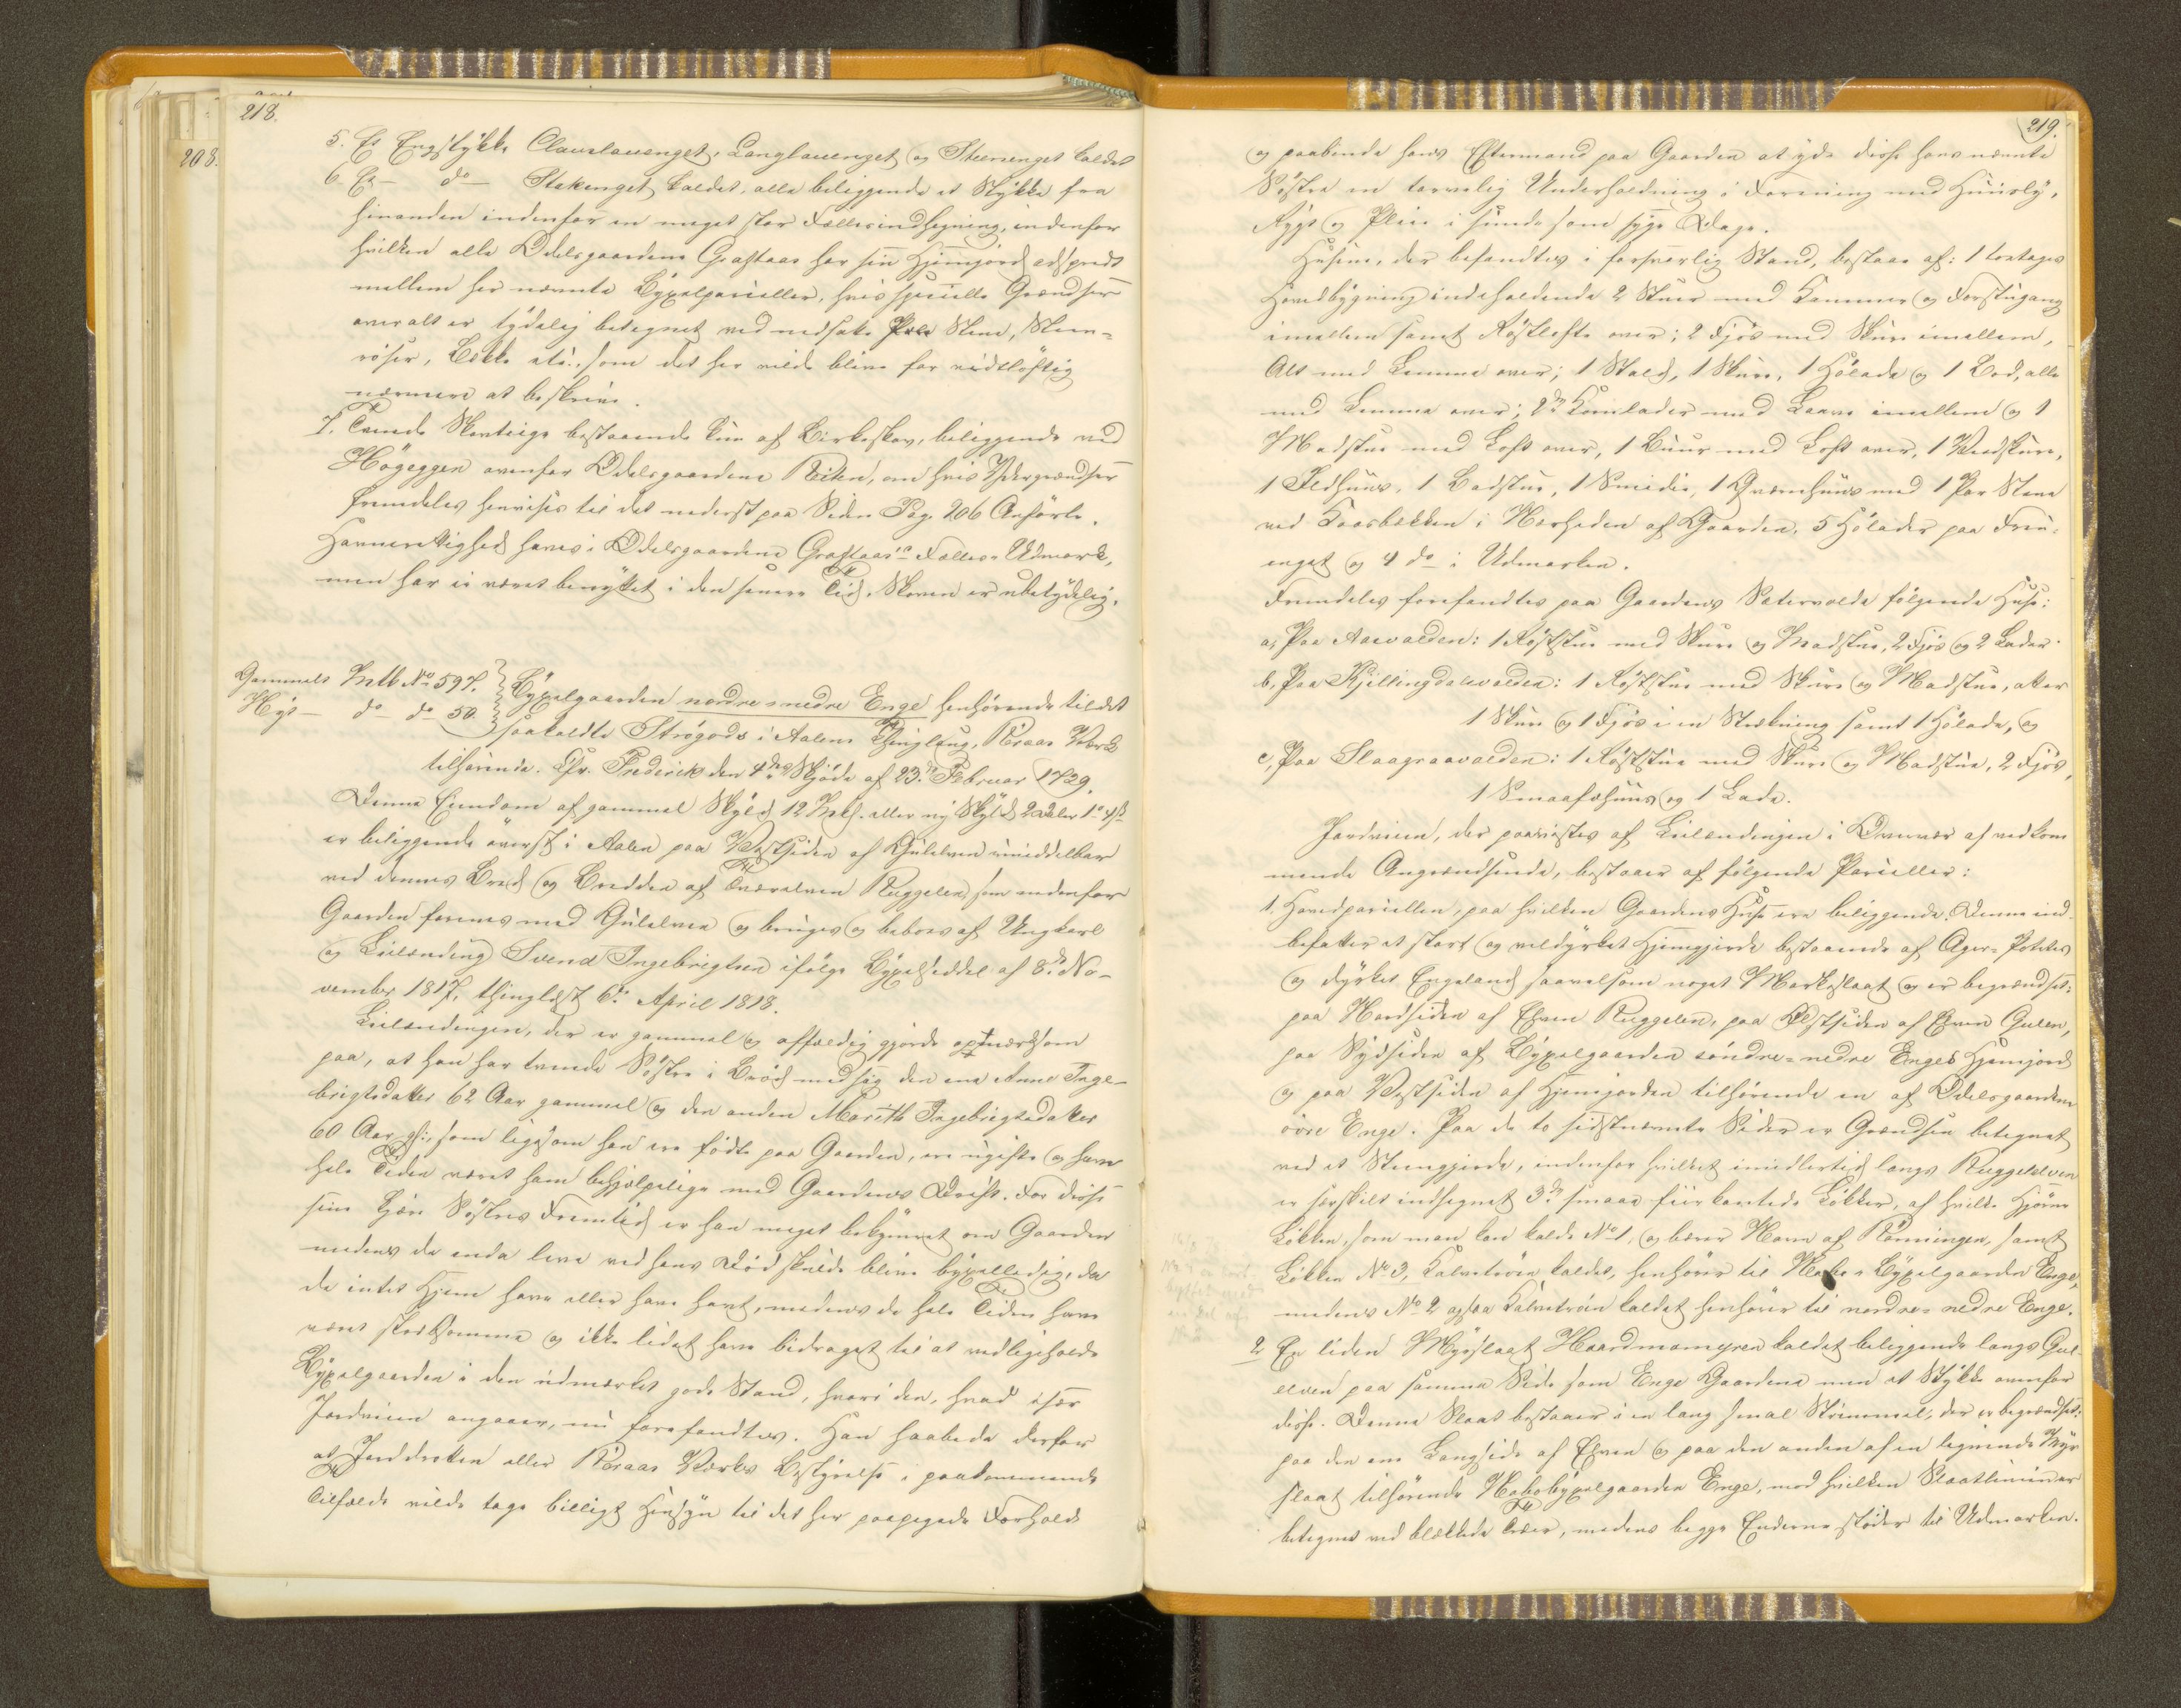 218.
208.
5. Et Engstykke Clauslauenget, Langlauenget og Steenenget kaldet
6. Et – do – Stakenget kaldet, alle beliggende et Stykke fra
hinanden indenfor en meget stor Fællesindhegning, indenfor
hvilken alle Odelsgaardene Graftaas har sin Hjemjord adspredt
mellem her nævnte Bygselparceller, hvis specielle Grændser
overalt er tydelig betegnet ved nedsatte Stene, Steen-
röser, Bække etc., som det her vilde blive for vidtlöftig
nærmere at beskrive.
7. Tvende Skovteige bestaaende kun af Birkeskov, beliggende ved
Högeggen ovenfor Odelsgaardene Reiten, om hvis Ydergrændser
fremdeles henvises til det nederst paa Siden Pag. 206 Anförte.
Havnerettighed haves i Odelsgaardene Graftaas's Fælles-Udmark,
men har ei været benyttet i den senere Tid. Skoven er ubetydelig.
Gammelt Mtb No 597.
Nye – do – do 50.
Bygselgaarden nordre nedre Enge henhörende til det
saakaldte Strögods i Aalens Thinglaug, Röraas Værk
tilhörende. Cfr. Frederick den 4des Skjöde af 23de Februar 1729.
Denne Eiendom af gammel Skyld 12 Mrkl. eller ny Skyld 2 Daler 1 4 ß
er beliggende överst i Aalen paa Vestsiden af Gulelven umiddelbar
ved dennes Bred og Bredden af Tværelven Ruggelen, som nedenfor
Gaarden forenes med Gulelven og bruges og beboes af Ungkarl
og Leilænding Svend Ingebrigtsen ifölge Bygselseddel af 8de No-
vember 1817, thinglæst 6te April 1818.
Leilændingen, der er gammel og affældig gjorde opmærksom
paa, at han har tvende Söstre i Bröd med sig den ene Anne Inge-
brigtsdatter 62 Aar gammel og den anden Marith Ingebrigtsdatter
60 Aar gl., som ligesom han ere födte paa Gaarden, ere ugifte og have
hele Tiden været ham behjelpelige med Gaardens Drift. For disse
sine kjære Söstres Fremtid er han meget bekymret om Gaarden
medens de endu leve ved hans Död skulde blive bygselledig, da
de intet Hjem have eller have havt, medens de hele Tiden have
været strebsomme og ikke lidet have bidraget til at vedligeholde
Bygselgaarden i den udmærket gode Stand, hvori den, hvad især
Jordveien angaaer, nu forefandtes. Han haabede derfor
at Jorddrotten eller Röraas Værks Bestyrelse i paakommende
Tilfælde vilde tage billigt Hensyn til det her paapegede Forhold
219.
og paabinde hans Eftermand paa Gaarden at yde disse hans nævnte
Söstre en tarvelig Underholdning i Forening med Huusly,
Rygt og Pleie i sunde som syge Dage.
Husene, der befandtes i forsvarlig Stand, bestaar af: 1 toetages
Hovedbygning indeholdende 2 Stuer med Kammer og Forstugang
imellem samt Röstlofte over; 2 Fjös med Skure imellem,
Alt med Lemme over; 1 Stald, 1 Skure, 1 Hölade og 1 Bod, alle
med Lemme over; 2de Kornlader med Laave imellem og 1
Madstue med Loft over, 1 Buur med Loft over, 1 Vedskure,
1 Ildhuus, 1 Badstue, 1 Smidie, 1 Qværnhuus med 1 Par Stene
ved Kaasbækken i Nærheden af Gaarden, 5 Hölader paa Frem-
enget og 4 do i Udmarken.
Fremdeles forefandtes paa Gaardens Sætervolde fölgende Huse:
a, Paa Aasvolden: 1 Röststue med Skure og Madstue, 2 Fjös og 2 Lader.
b, Paa Kjellingdalsvolden: 1 Röststue med Skure og Madstue,
1 Skure og 1 Fjös i en Strækning samt 1 Hölade, og
c, Paa Slaagraavolden: 1 Röststue med Skure og Madstue, 2 Fjös,
1 Smaafæhuus og 1 Lade.
Jordveien, der paavistes af Leilændingen i Overvær af vedkom
mende Angrændsende, bestaaer af fölgende Parceller:
1. Hovedparcellen, paa hvilken Gaardens Huse ere beliggende. Denne ind-
befatter et stort og veldyrket Hjemgjerde bestaaende af Ager-Potetes
og dyrket Engeland saavelsom noget Markeslaat og er begrændset:
paa Nordsiden af Elven Ruggelen, paa Östsiden af Elven Gulen,
paa Sydsiden af Bygselgaarden söndre-nedre Enges Hjemjord
og paa Vestsiden af Hjemjorden tilhörende en af Odelsgaardene
övre Enge. Paa de to sidstnævnte Sider er Grændsen betegnet
ved et Steengjerde, indenfor hvilket imidlertid langs Ruggelelven
er særskilt indhegnet 3de smaae fiirkantede Lökker, af hvilke Hjörne
Lökken, som man kan kalde No 1, og bærer Navn af Rönningen, samt
Lökken No 3, Kalvetröen kaldet, henhörer til Nabo-Bygselgaarden Enge,
medens No 2 ogsaa Kalvetröen kaldet henhörer til nordre-nedre Enge.
2 En liden Myrslaat Haardmomyren kaldet beliggende langs Gul-
elven paa samme Side som Enge Gaardene men et Stykke ovenfor
disse. Denne Slaat bestaaer i en lang smal Strimmel, der er begrændset:
paa den ene Langside af Elven og paa den anden af en lignende Myr
slaat tilhörende Nabobygselgaarden Enge, mod hvilken Slaatlinien er
betegnet ved blekkede Træer, medens begge Enderne stöder til Udmarken.